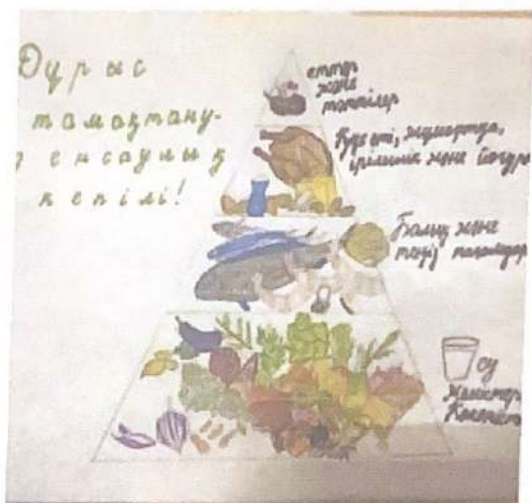 Дұрыс
тамақтану-
денсаулық
кепілі!
еттер
және
тәттілер
Құс еті, жұмыртқа,
ірімшік және йогурт
Балық және
теңіз тағамдары
су
Жемістер
Көкөніс